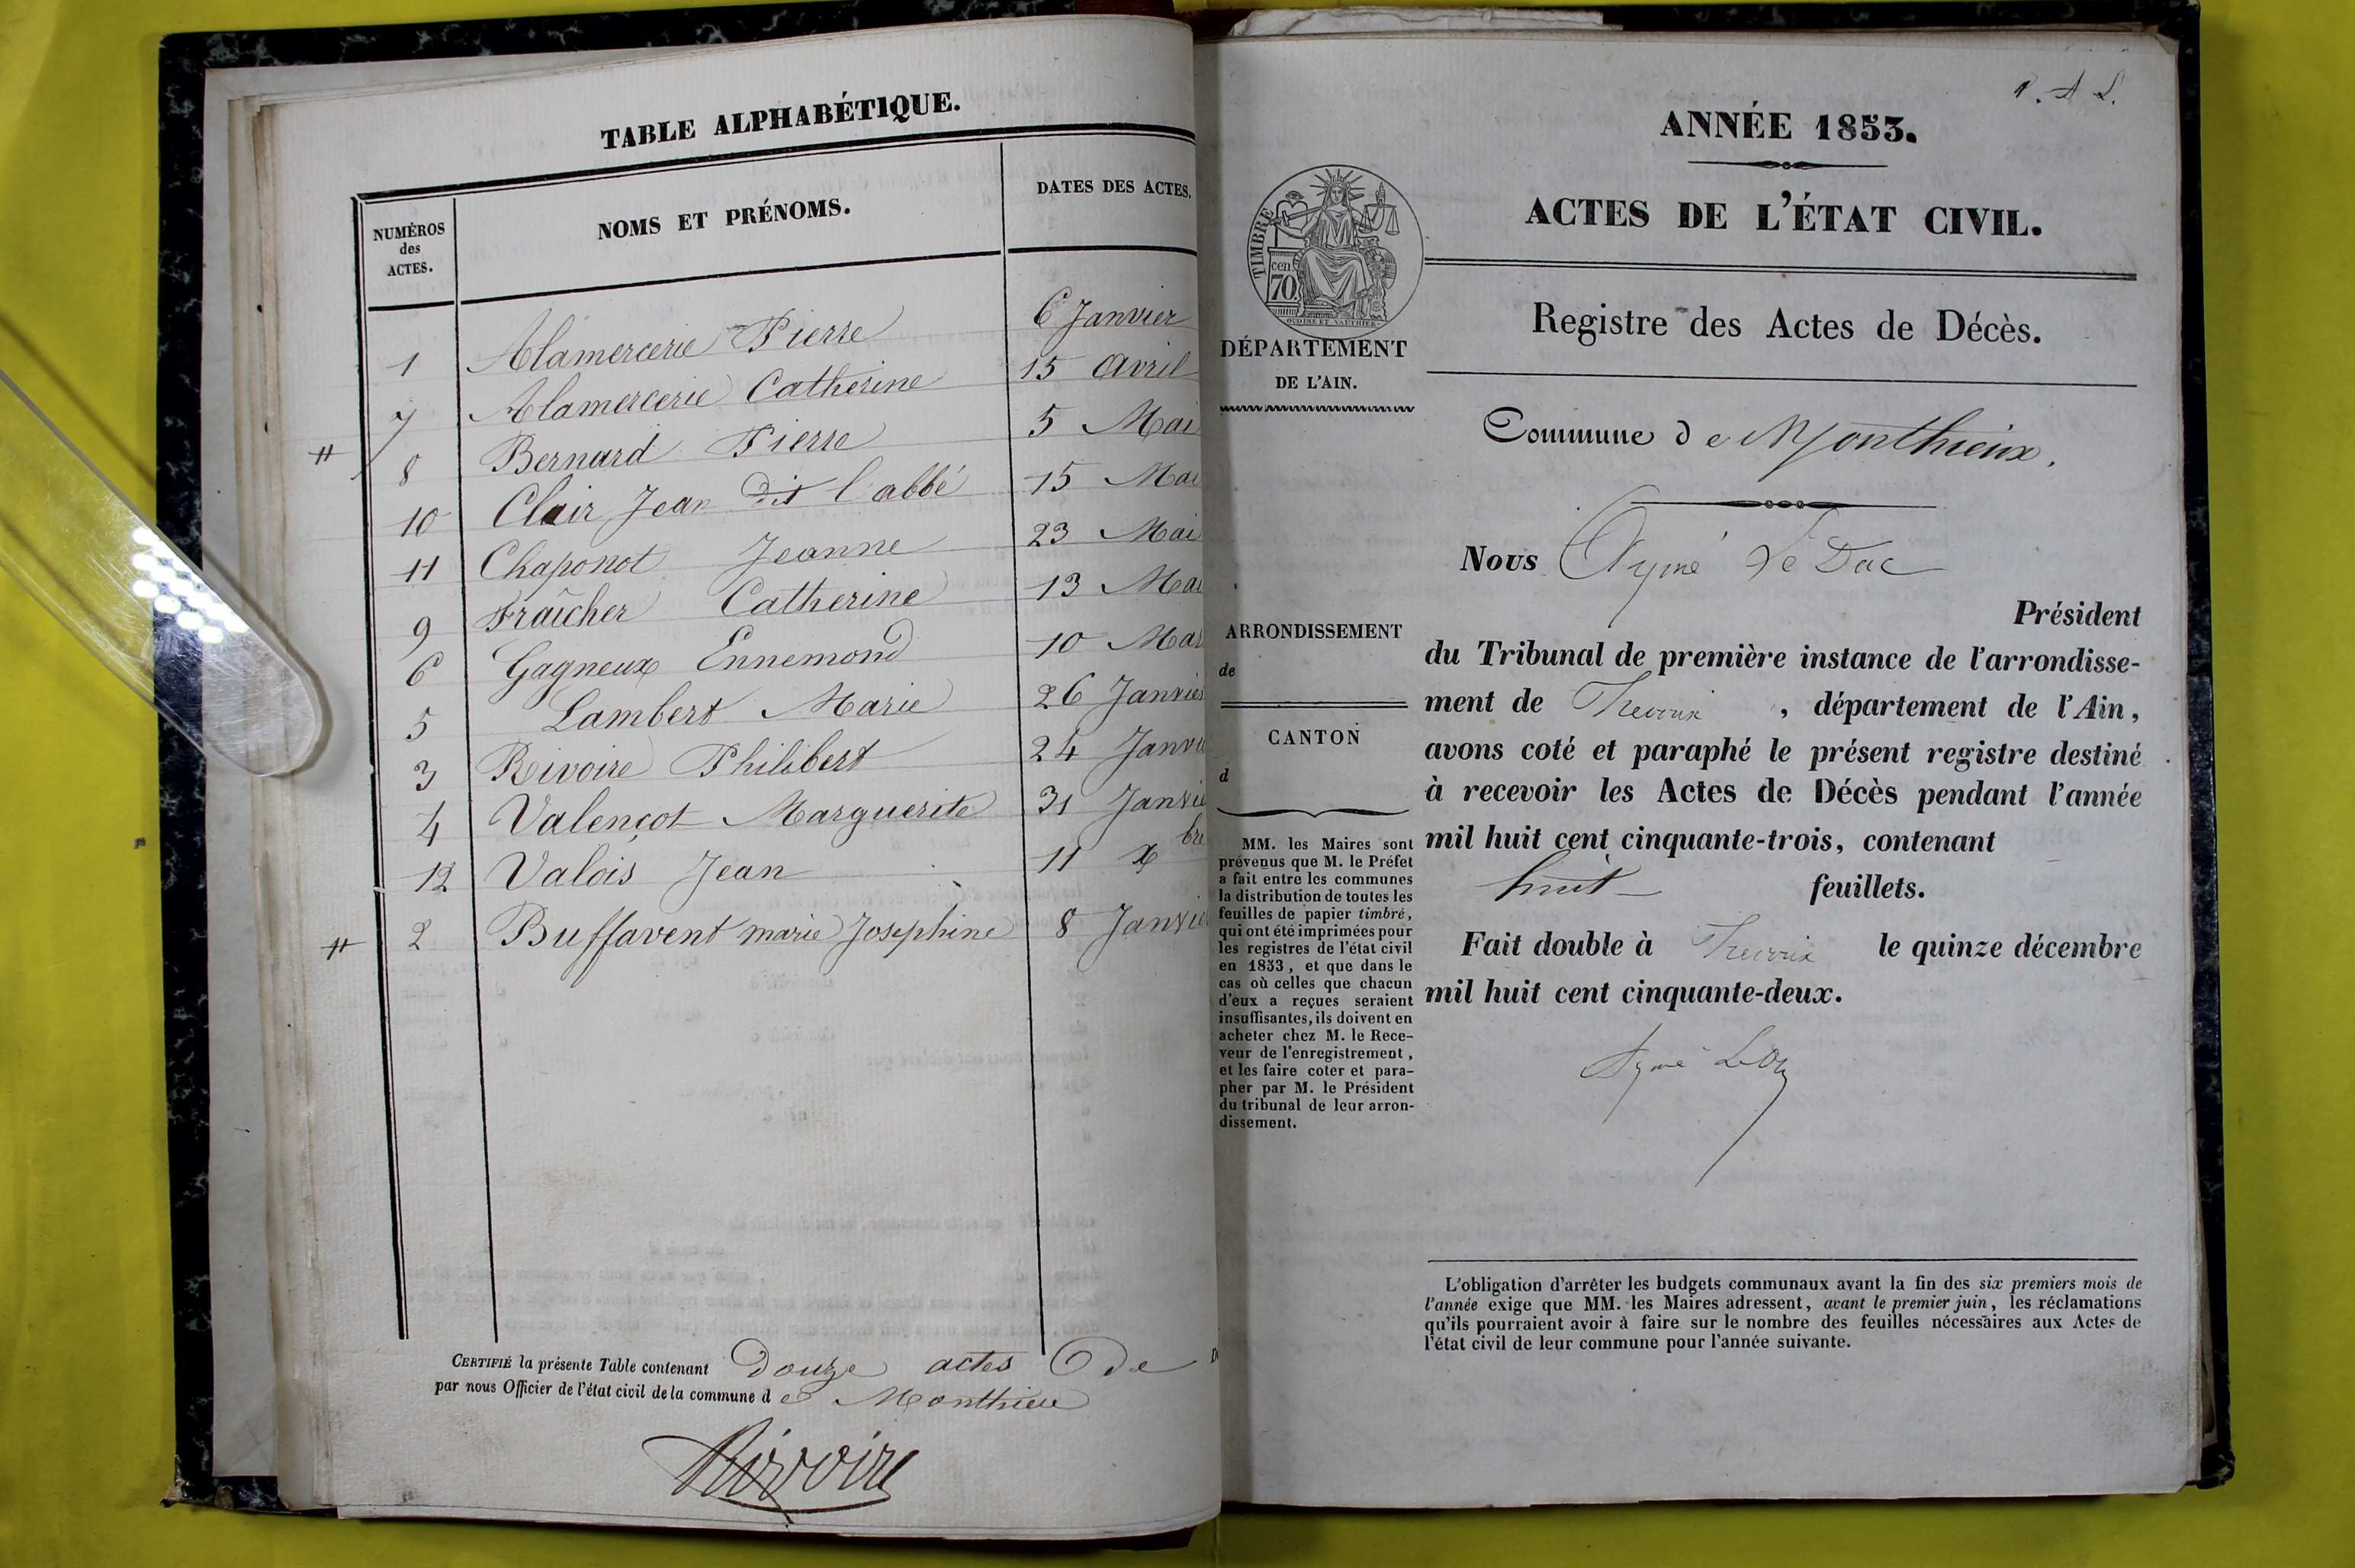 TABLE ALPHABÉTIQUE.
NUMÉROS
des
ACTES.
NOMS ET PRÉNOMS.
DATES DES ACTES.
1 Alamercerie Pierre 6 Janvier
7 Alamercerie Catherine 15 Avril
8 Bernard Pierre 5 Mai
10 Clair Jean dit l'abbé 15 Mai
11 Chaponot Jeanne 23 Mai
9 Fraîcher Catherine 13 Mai
6 Gagneux Ennemond 10 Mar
5 Lambert Marie 26 Janvier
3 Rivoire Philibert 24 Janvi
4 Valençot Marguerite 31 Janvie
12 Valois Jean 11 xbre
2 Buffavent marie Josephine 8 Janvier
CERTIFIÉ la présente Table contenant douze actes de
par nous Officier de l'état civil de la commune de Monthieu
Rivoire
ANNÉE 1853.
ACTES DE L'ÉTAT CIVIL.
TIMBRE
cen
70
OUDINÉ ET VAUTHIER
DÉPARTEMENT
DE L'AIN.
Registre des Actes de Décès.
Commune de Monthieux.
Nous Aymé Le Duc
Président
du Tribunal de première instance de l'arrondisse-
ment de Trevoux , département de l'Ain,
avons coté et paraphé le présent registre destiné
à recevoir les Actes de Décès pendant l'année
mil huit cent cinquante-trois, contenant
huit feuillets.
Fait double à Trevoux le quinze décembre
mil huit cent cinquante-deux.
ARRONDISSEMENT
de
CANTON
d
MM. les Maires sont
prévenus que M. le Préfet
a fait entre les communes
la distribution de toutes les
feuilles de papier timbré,
qui ont été imprimées pour
les registres de l'état civil
en 1853, et que dans le
cas où celles que chacun
d'eux a reçues seraient
insuffisantes, ils doivent en
acheter chez M. le Rece-
veur de l'enregistrement,
et les faire coter et para-
pher par M. le Président
du tribunal de leur arron-
dissement.
L'obligation d'arrêter les budgets communaux avant la fin des six premiers mois de
l'année exige que MM. les Maires adressent, avant le premier juin, les réclamations
qu'ils pourraient avoir à faire sur le nombre des feuilles nécessaires aux Actes de
l'état civil de leur commune pour l'année suivante.